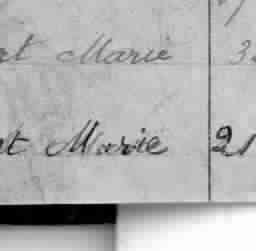 rt Marie 3
at Marie 21